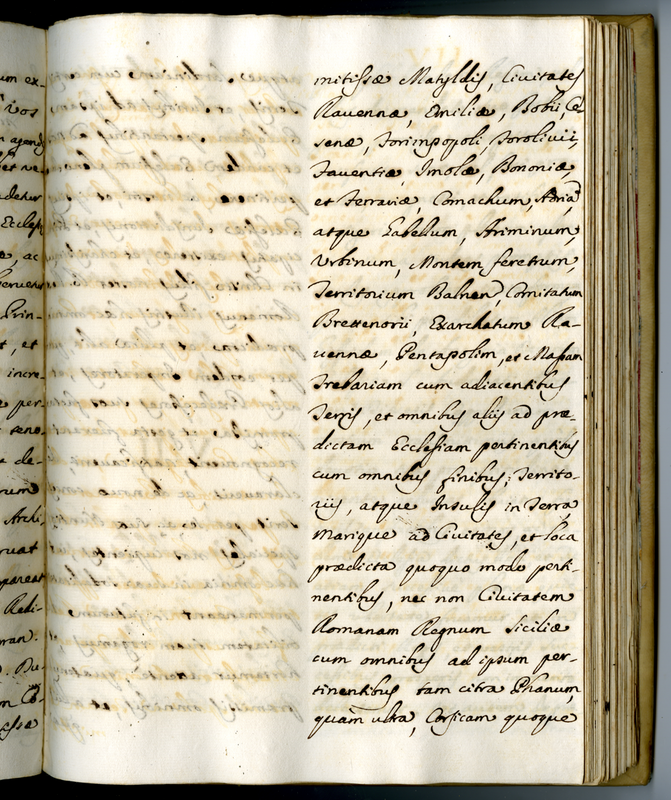 um ex-
agend
et ne
detur
Eccles
ac
Prin-
t, et
incre-
per
teno-
de-
rum
Archi-
ruat
pareat
mitissæ Matyldis, Civitates
Ravennæ, Emiliæ, Bobii, Ce-
senæ, Forimpopoli, Forolivii,
Faventiæ, Imolæ, Bononiæ,
et Ferrariæ, Comachum, Adriã
atque Gabellum, Ariminum,
Vrbinum, Montem feretrum,
Territorium Balnen, Comitatum
Brettenorii, Exarchatum Ra-
uennæ, Pentapolim, et Massam
Trebariam cum adiacentibus
Terris, et omnibus aliis ad præ-
dictam Ecclesiam pertinentibus
cum omnibus finibus, Territo-
riis, atque Insulis in Terra,
Marique ad Civitates, et loca
prædicta quoquo modo perti-
nentibus, nec non Civitatem
Romanam Regnum Siciliæ
cum omnibus ad ipsum per-
tinentibus tam citra Pharum,
quàm ultra, Corsicam quoque